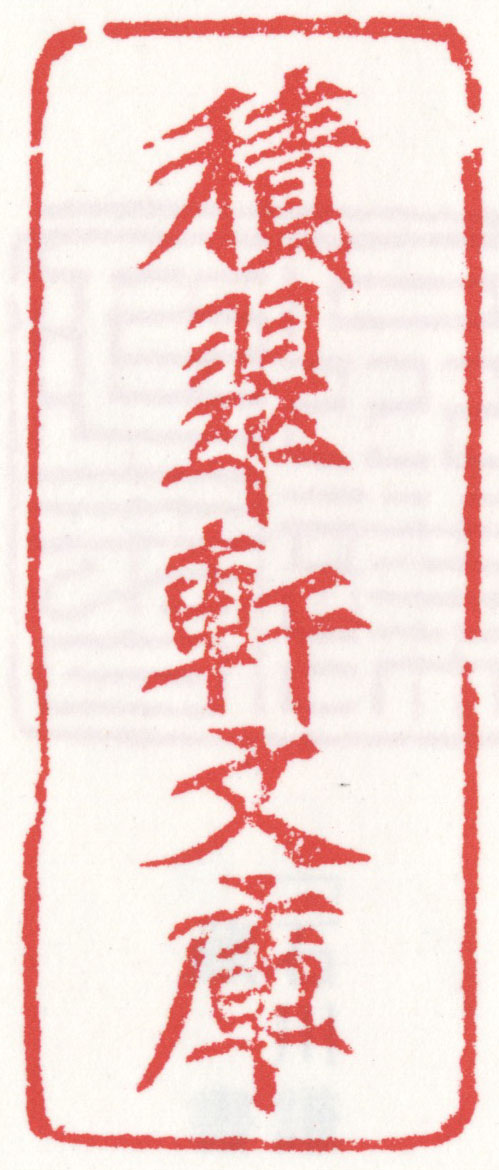 積翠軒文庫